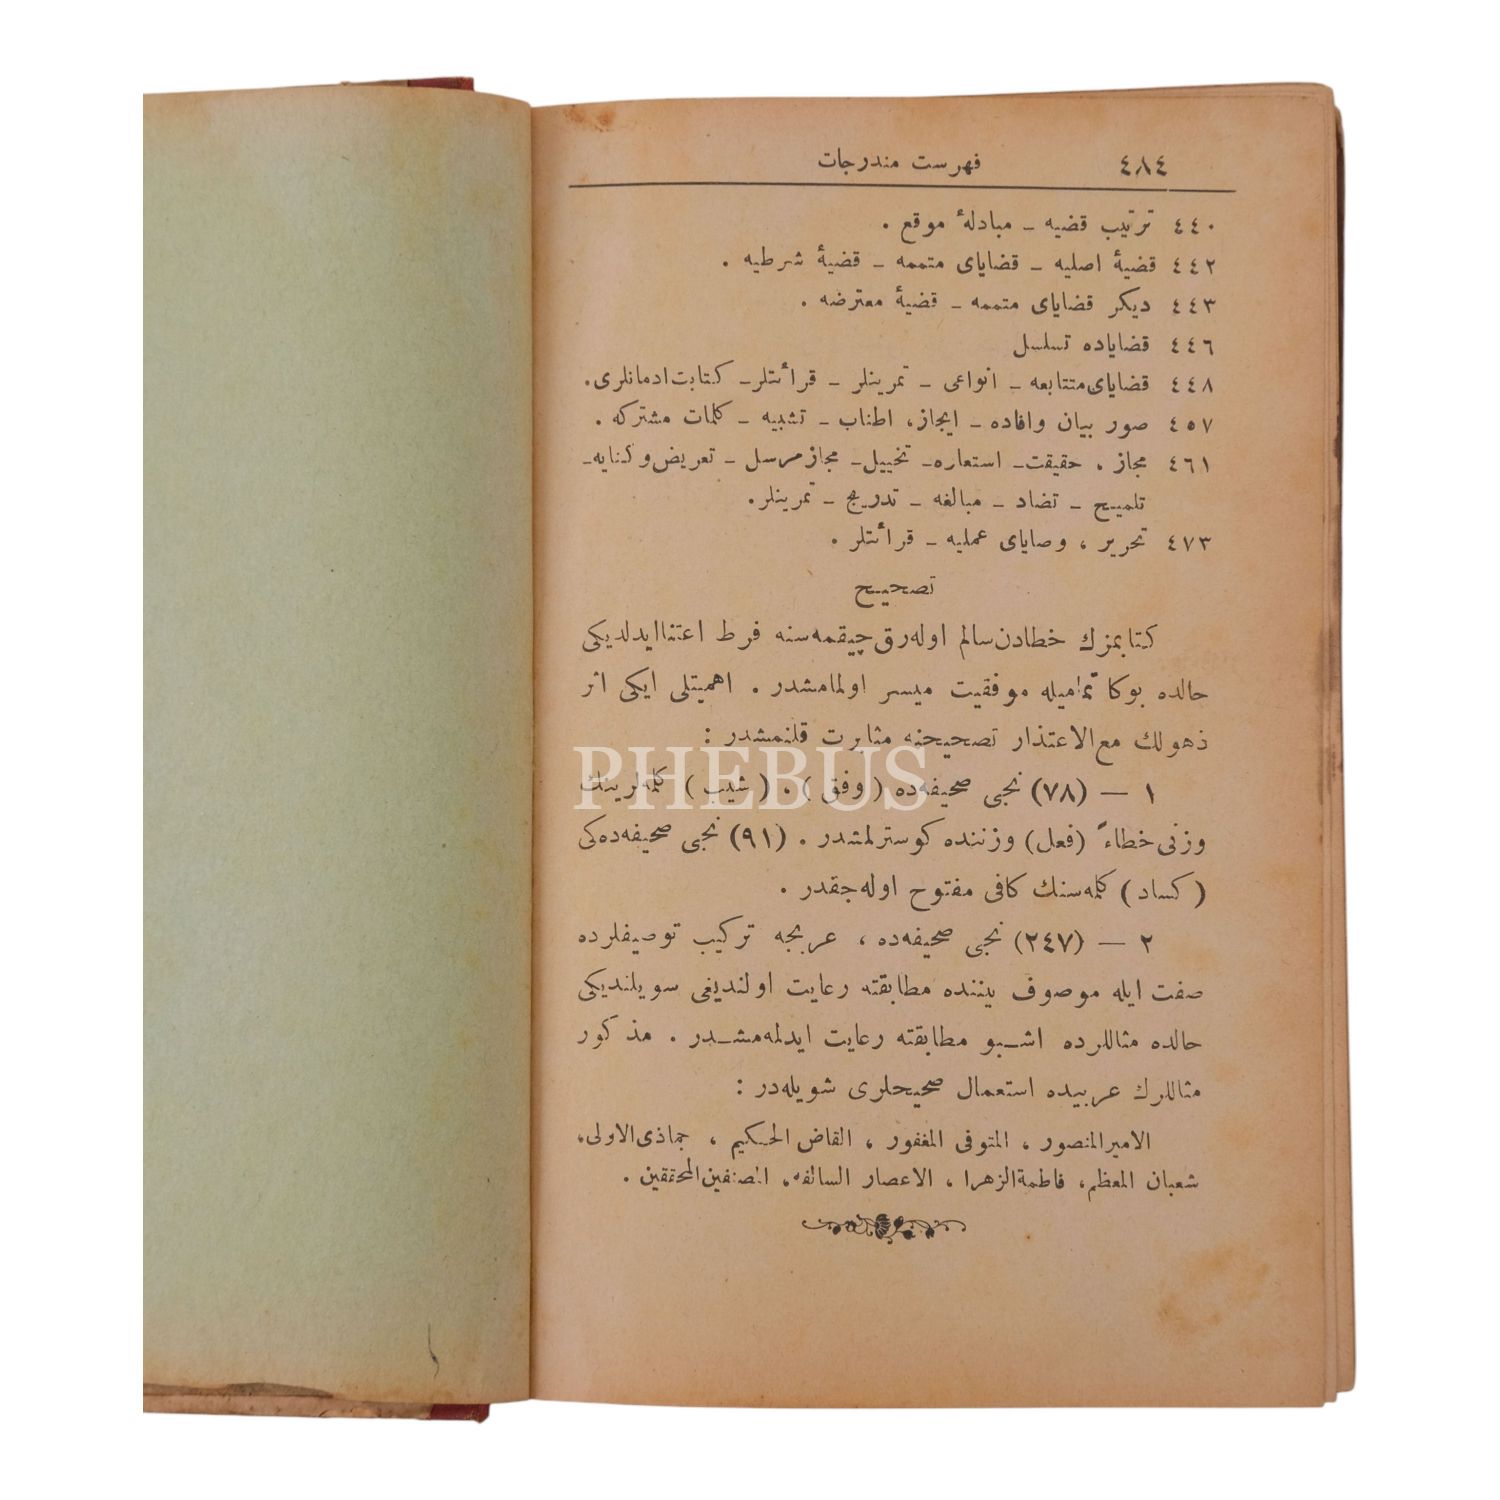 ٤٨٤ فهرست مندرجات
٤٤٠ ترتيب قضيه ـ مبادلهٔ موقع .
٤٤٢ قضيهٔ اصليه ـ قضاياى متممه ـ قضيهٔ شرطيه .
٤٤٣ ديكر قضاياى متممه ـ قضيهٔ معترضه .
٤٤٦ قضاياده تسلسل
٤٤٨ قضاياى متتابعه ـ انواعى ـ تمرينلر ـ قرائتلر ـ كتابت ادمانلرى.
٤٥٧ صور بيان وافاده ـ ايجاز، اطناب ـ تشبيه ـ كلمات مشتركه .
٤٦١ مجاز ، حقيقت ـ استعاره ـ تخييل ـ مجاز مرسل ـ تعريض و كنايه ـ
تلميح ـ تضاد ـ مبالغه ـ تدريج ـ تمرينلر.
٤٧٣ تحرير ، وصاياى عمليه ـ قرائتلر .
تصحيح
كتابمزك خطادن سالم اوله‌رق چيقمه‌سنه فرط اعتنا ايدلديكى
حالده بوكا تماميله موفقيت ميسر اولمامشدر . اهميتلى ايكى اثر
ذهولك مع الاعتذار تصحيحنه مثابرت قلنمشدر :
PHEBUS
١ — (٧٨) نجى صحيفه‌ده (وفق) ، (شيب) كلمه‌لرينك
وزنى خطاءً (فعل) وزننده كوسترلمشدر . (٩١) نجى صحيفه‌ده‌كى
(كساد) كلمه‌سنك كافى مفتوح اوله‌جقدر .
٢ — (٢٤٧) نجى صحيفه‌ده ، عربجه تركيب توصيفلرده
صفت ايله موصوف بيننده مطابقته رعايت اولنديغى سويلنديكى
حالده مثاللرده اشبو مطابقته رعايت ايدلمه‌مشدر . مذكور
مثاللرك عربيده استعمال صحيحلرى شويله‌در :
الامير المنصور ، المتوفى المغفور ، القاض الحكيم ، جماذى الاولى،
شعبان المعظم، فاطمة الزهرا ، الاعصار السالفه، المصنفين المحققين .